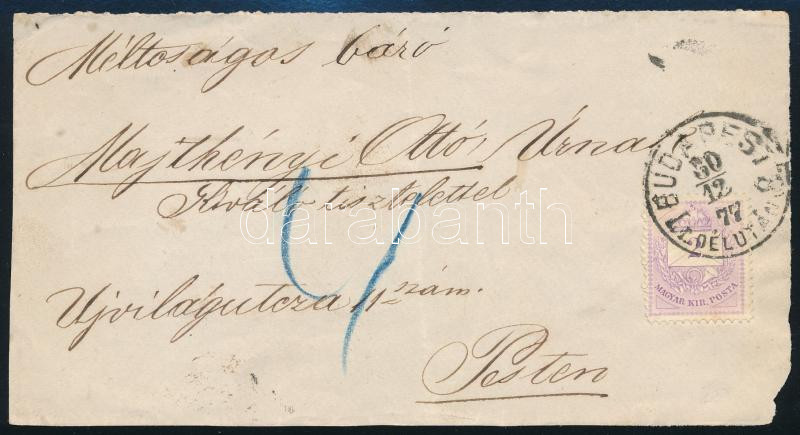 Méltoságos báró
Majthényi Ottó Úrnak
Kiváló tisztelettel
Ujvilágutcza 11 szám.
Pesten
BUDAPEST
30
12
77
DÉLUTÁN
2
MAGYAR KIR. POSTA
darabanth